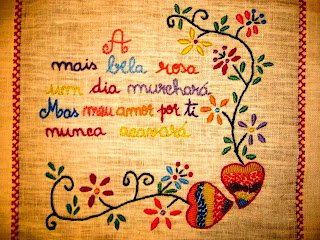 A
mais bela rosa
um dia murchará
Mas meu amor por ti
nunca acavará